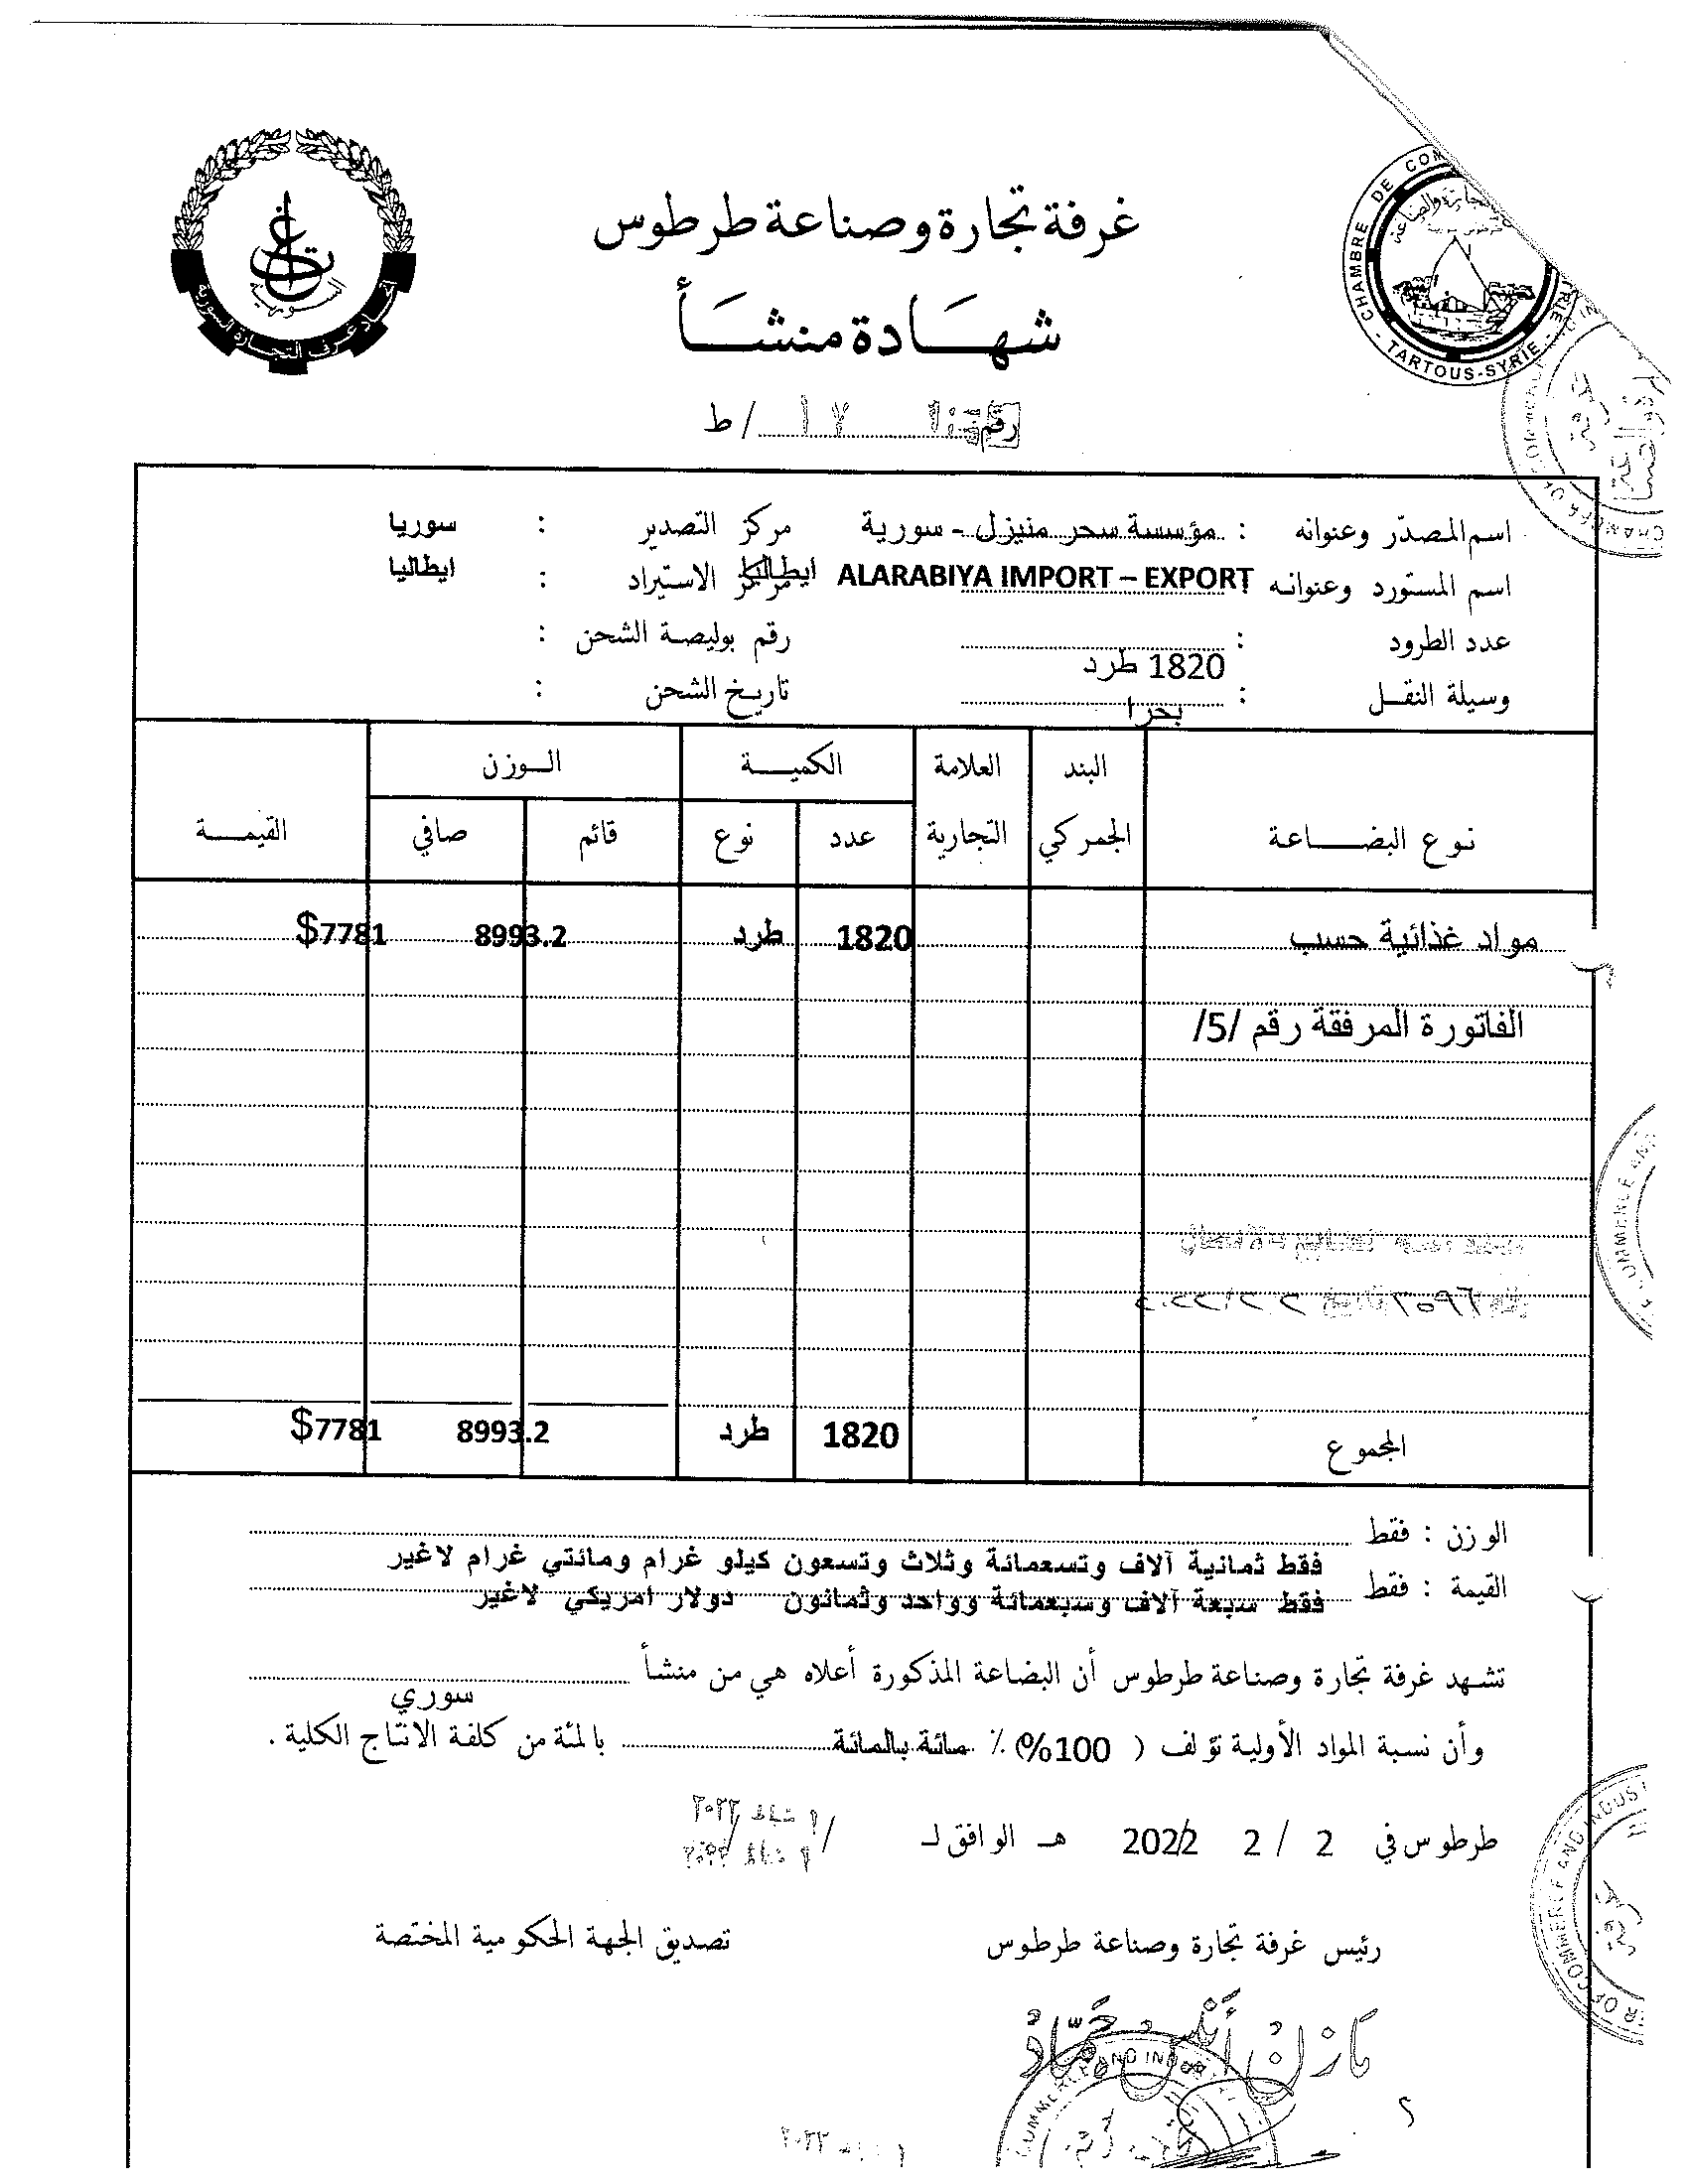 غرفة تجارة وصناعة طرطوس
شهادة منشأ
رقم / ط
CHAMBRE DE COM
TARTOUS-SYRIE
اتحاد غرف التجارة السورية
اسم المصدّر وعنوانه : مؤسسة سحر منيزل - سورية مركز التصدير : سوريا
اسم المستورد وعنوانه : ALARABIYA IMPORT – EXPORT ايطاليا مركز الاستيراد : ايطاليا
عدد الطرود : 1820 طرد رقم بوليصة الشحن :
وسيلة النقل : بحرا تاريخ الشحن :
نوع البضاعة البند الجمركي العلامة التجارية الكمية الوزن القيمة
عدد نوع قائم صافي
مواد غذائية حسب 1820 طرد 8993.2 $7781
الفاتورة المرفقة رقم /5/
المجموع 1820 طرد 8993.2 $7781
الوزن : فقط
فقط ثمانية آلاف وتسعمائة وثلاث وتسعون كيلو غرام ومائتي غرام لاغير
القيمة : فقط
فقط سبعة آلاف وسبعمائة وواحد وثمانون دولار امريكي لاغير
تشهد غرفة تجارة وصناعة طرطوس أن البضاعة المذكورة أعلاه هي من منشأ
سوري
وأن نسبة المواد الأولية تؤلف ( 100%) ٪ مائة بالمائة بالمئة من كلفة الانتاج الكلية .
طرطوس في 2 / 2 2022 هـ الوافق لـ /
رئيس غرفة تجارة وصناعة طرطوس تصديق الجهة الحكومية المختصة
مازن أنس حمّاد